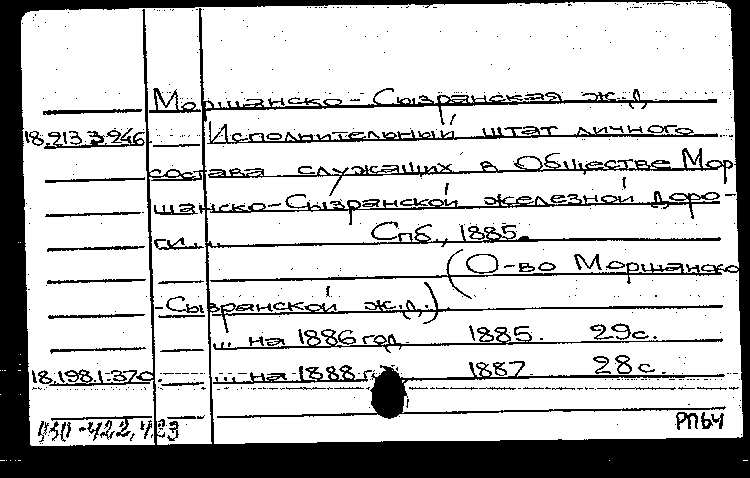 Моршанско-Сызранская ж.д.
18.213.3.246 Исполнительный штат личного
состава служащих в Обществе Мор
шанско-Сызранской железной доро-
ги... Спб., 1885.
(О-во Моршанско
-Сызранской ж.д.)
... на 1886 год. 1885. 29с.
18.198.1.370. ... на 1888 г. 1887. 28с.
РПБЧ